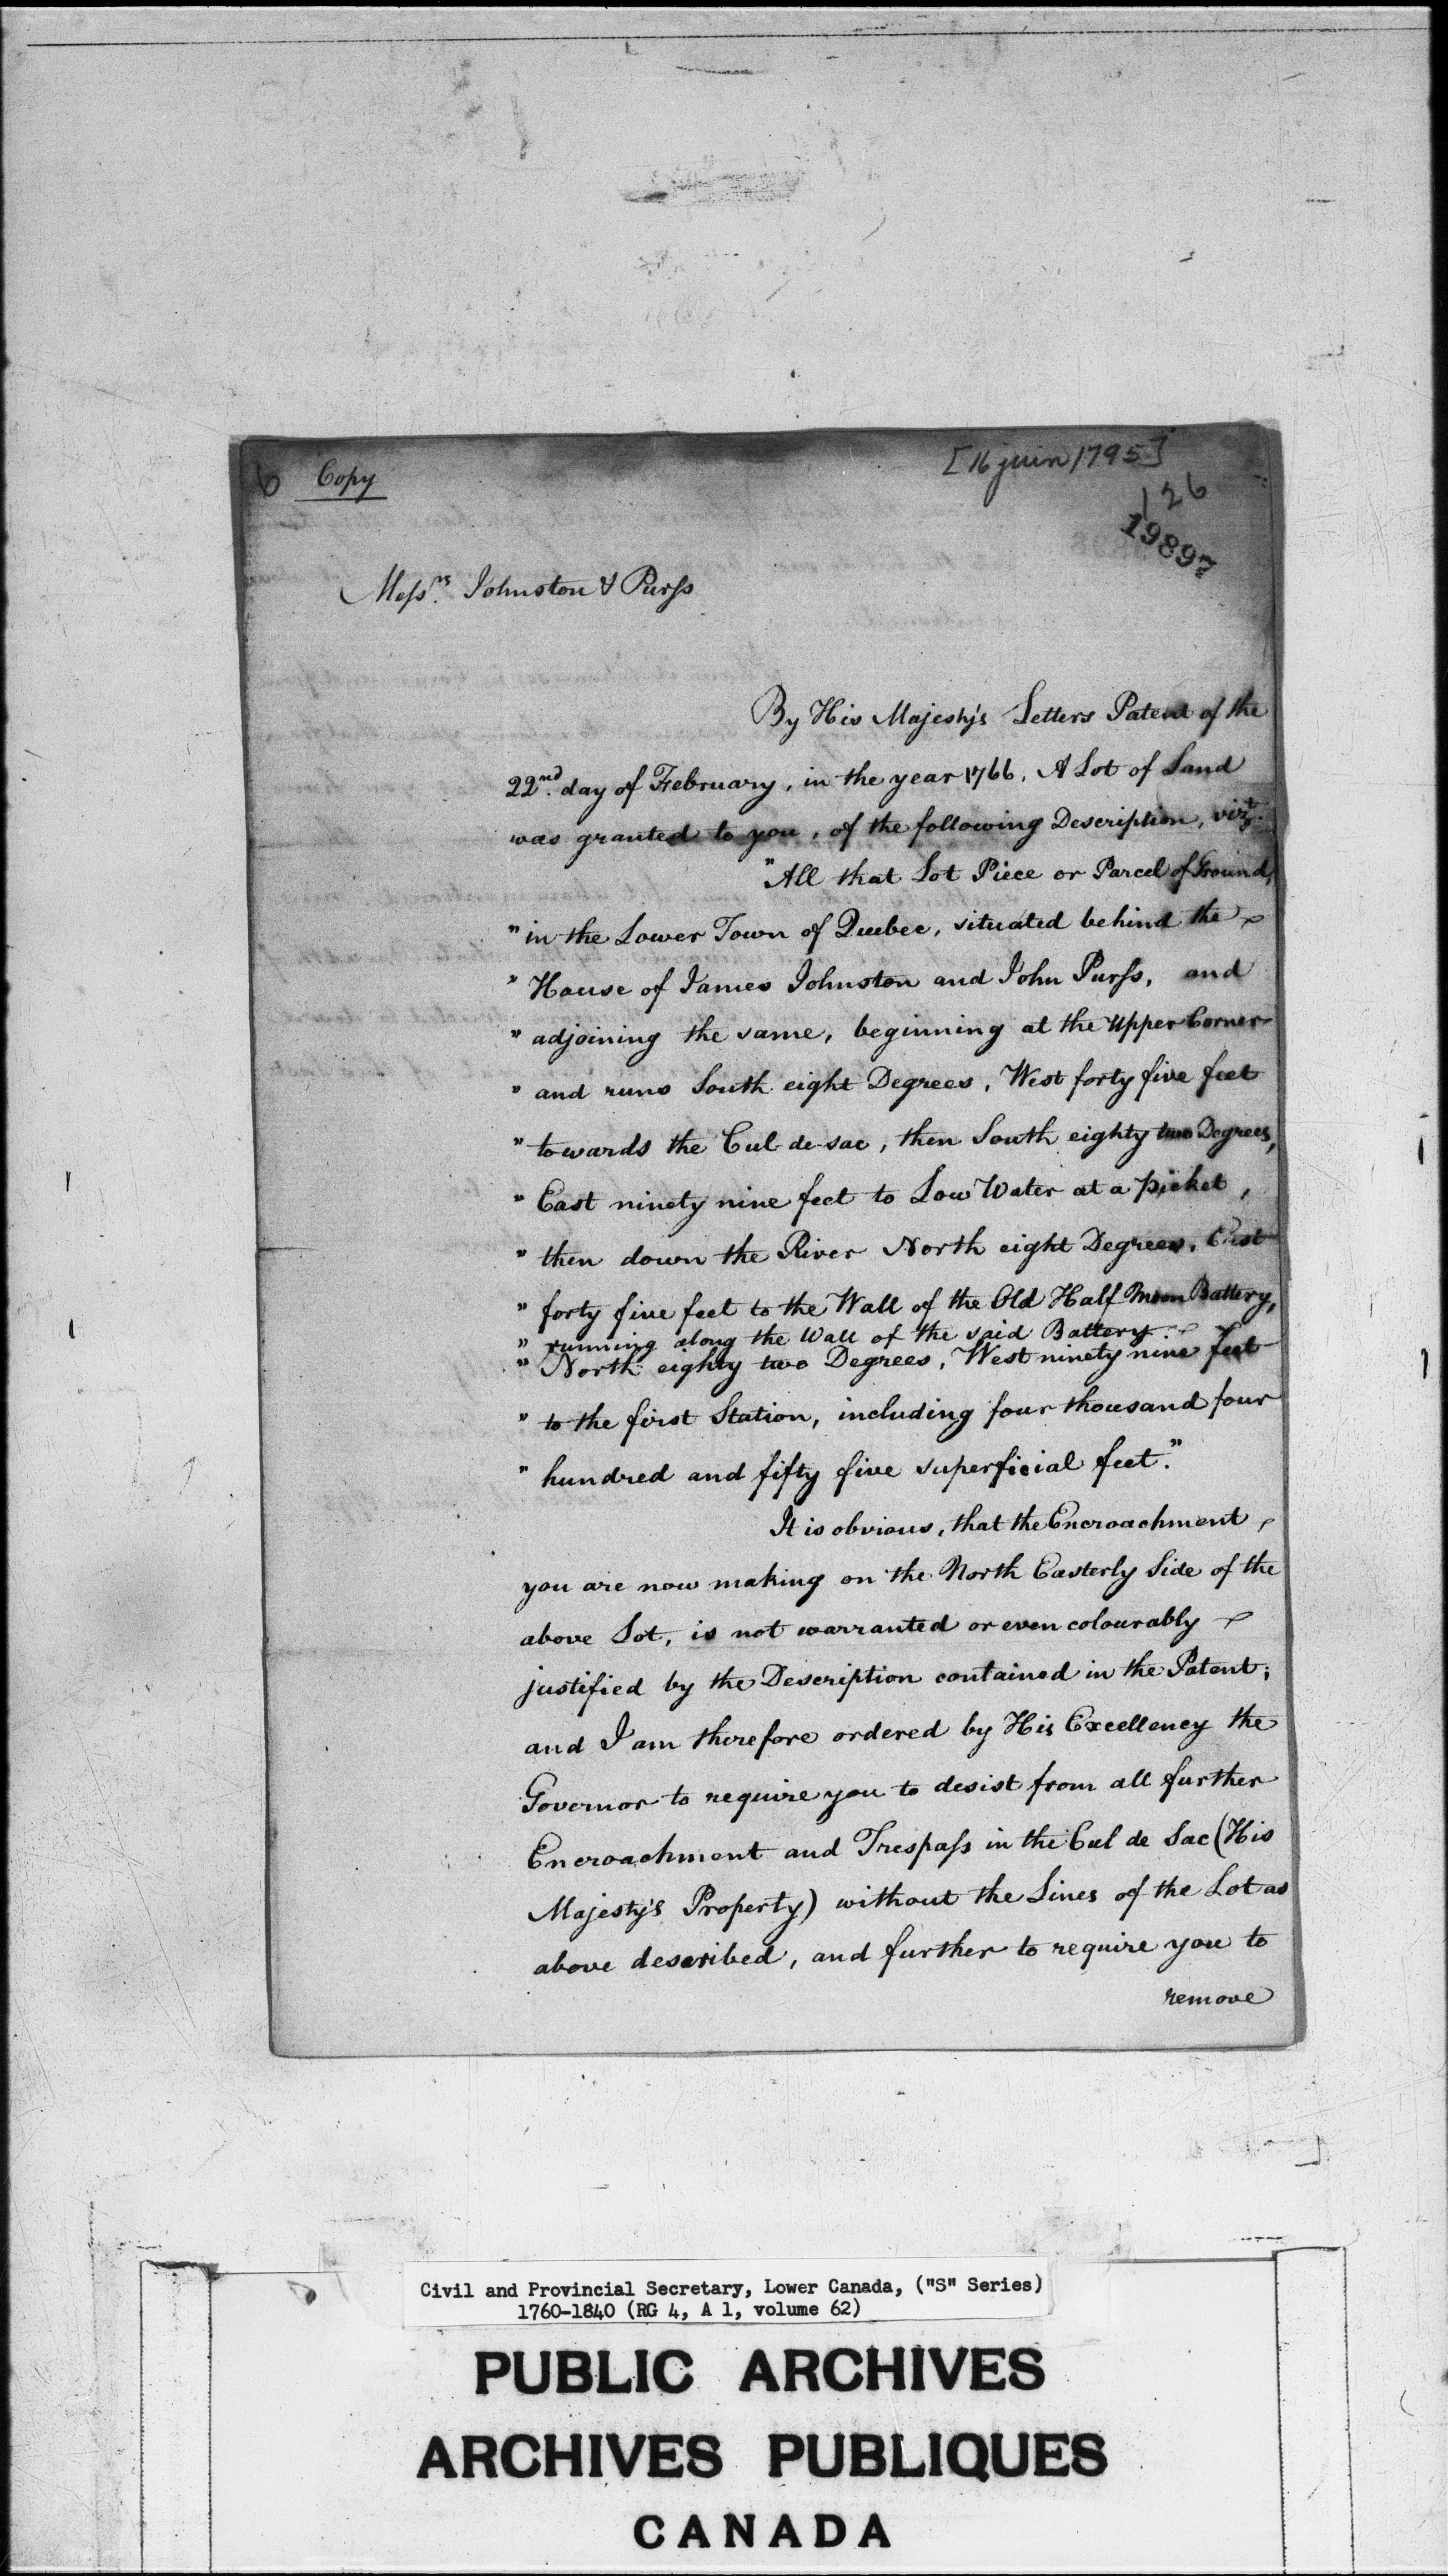 6 Copy
[16 juin 1795]
126
19897
Messrs. Johnston & Purss
By His Majesty's Letters Patent of the
22nd. day of February, in the year 1766, A Lot of Land
was granted to you, of the following Description, vizt.
"All that Lot Piece or Parcel of Ground,
" in the Lower Town of Quebec, situated behind the
" House of James Johnston and John Purss, and
" adjoining the same, beginning at the Upper Corner
" and runs South eight Degrees, West forty five feet
" towards the Cul-de-sac, then South eighty two Degrees,
" East ninety nine feet to Low Water at a picket,
" then down the River North eight Degrees, East
" forty five feet to the Wall of the Old Half Moon Battery,
" running along the Wall of the said Battery
" North eighty two Degrees, West ninety nine feet
" to the first Station, including four thousand four
" hundred and fifty five superficial feet."
It is obvious, that the Encroachment
you are now making on the North Easterly Side of the
above Lot, is not warranted or even colourably
justified by the Description contained in the Patent;
and I am therefore ordered by His Excellency the
Governor to require you to desist from all further
Encroachment and Trespass in the Cul de Sac (His
Majesty's Property) without the Lines of the Lot as
above described, and further to require you to
remove
Civil and Provincial Secretary, Lower Canada, ("S" Series)
1760-1840 (RG 4, A 1, volume 62)
PUBLIC ARCHIVES
ARCHIVES PUBLIQUES
CANADA